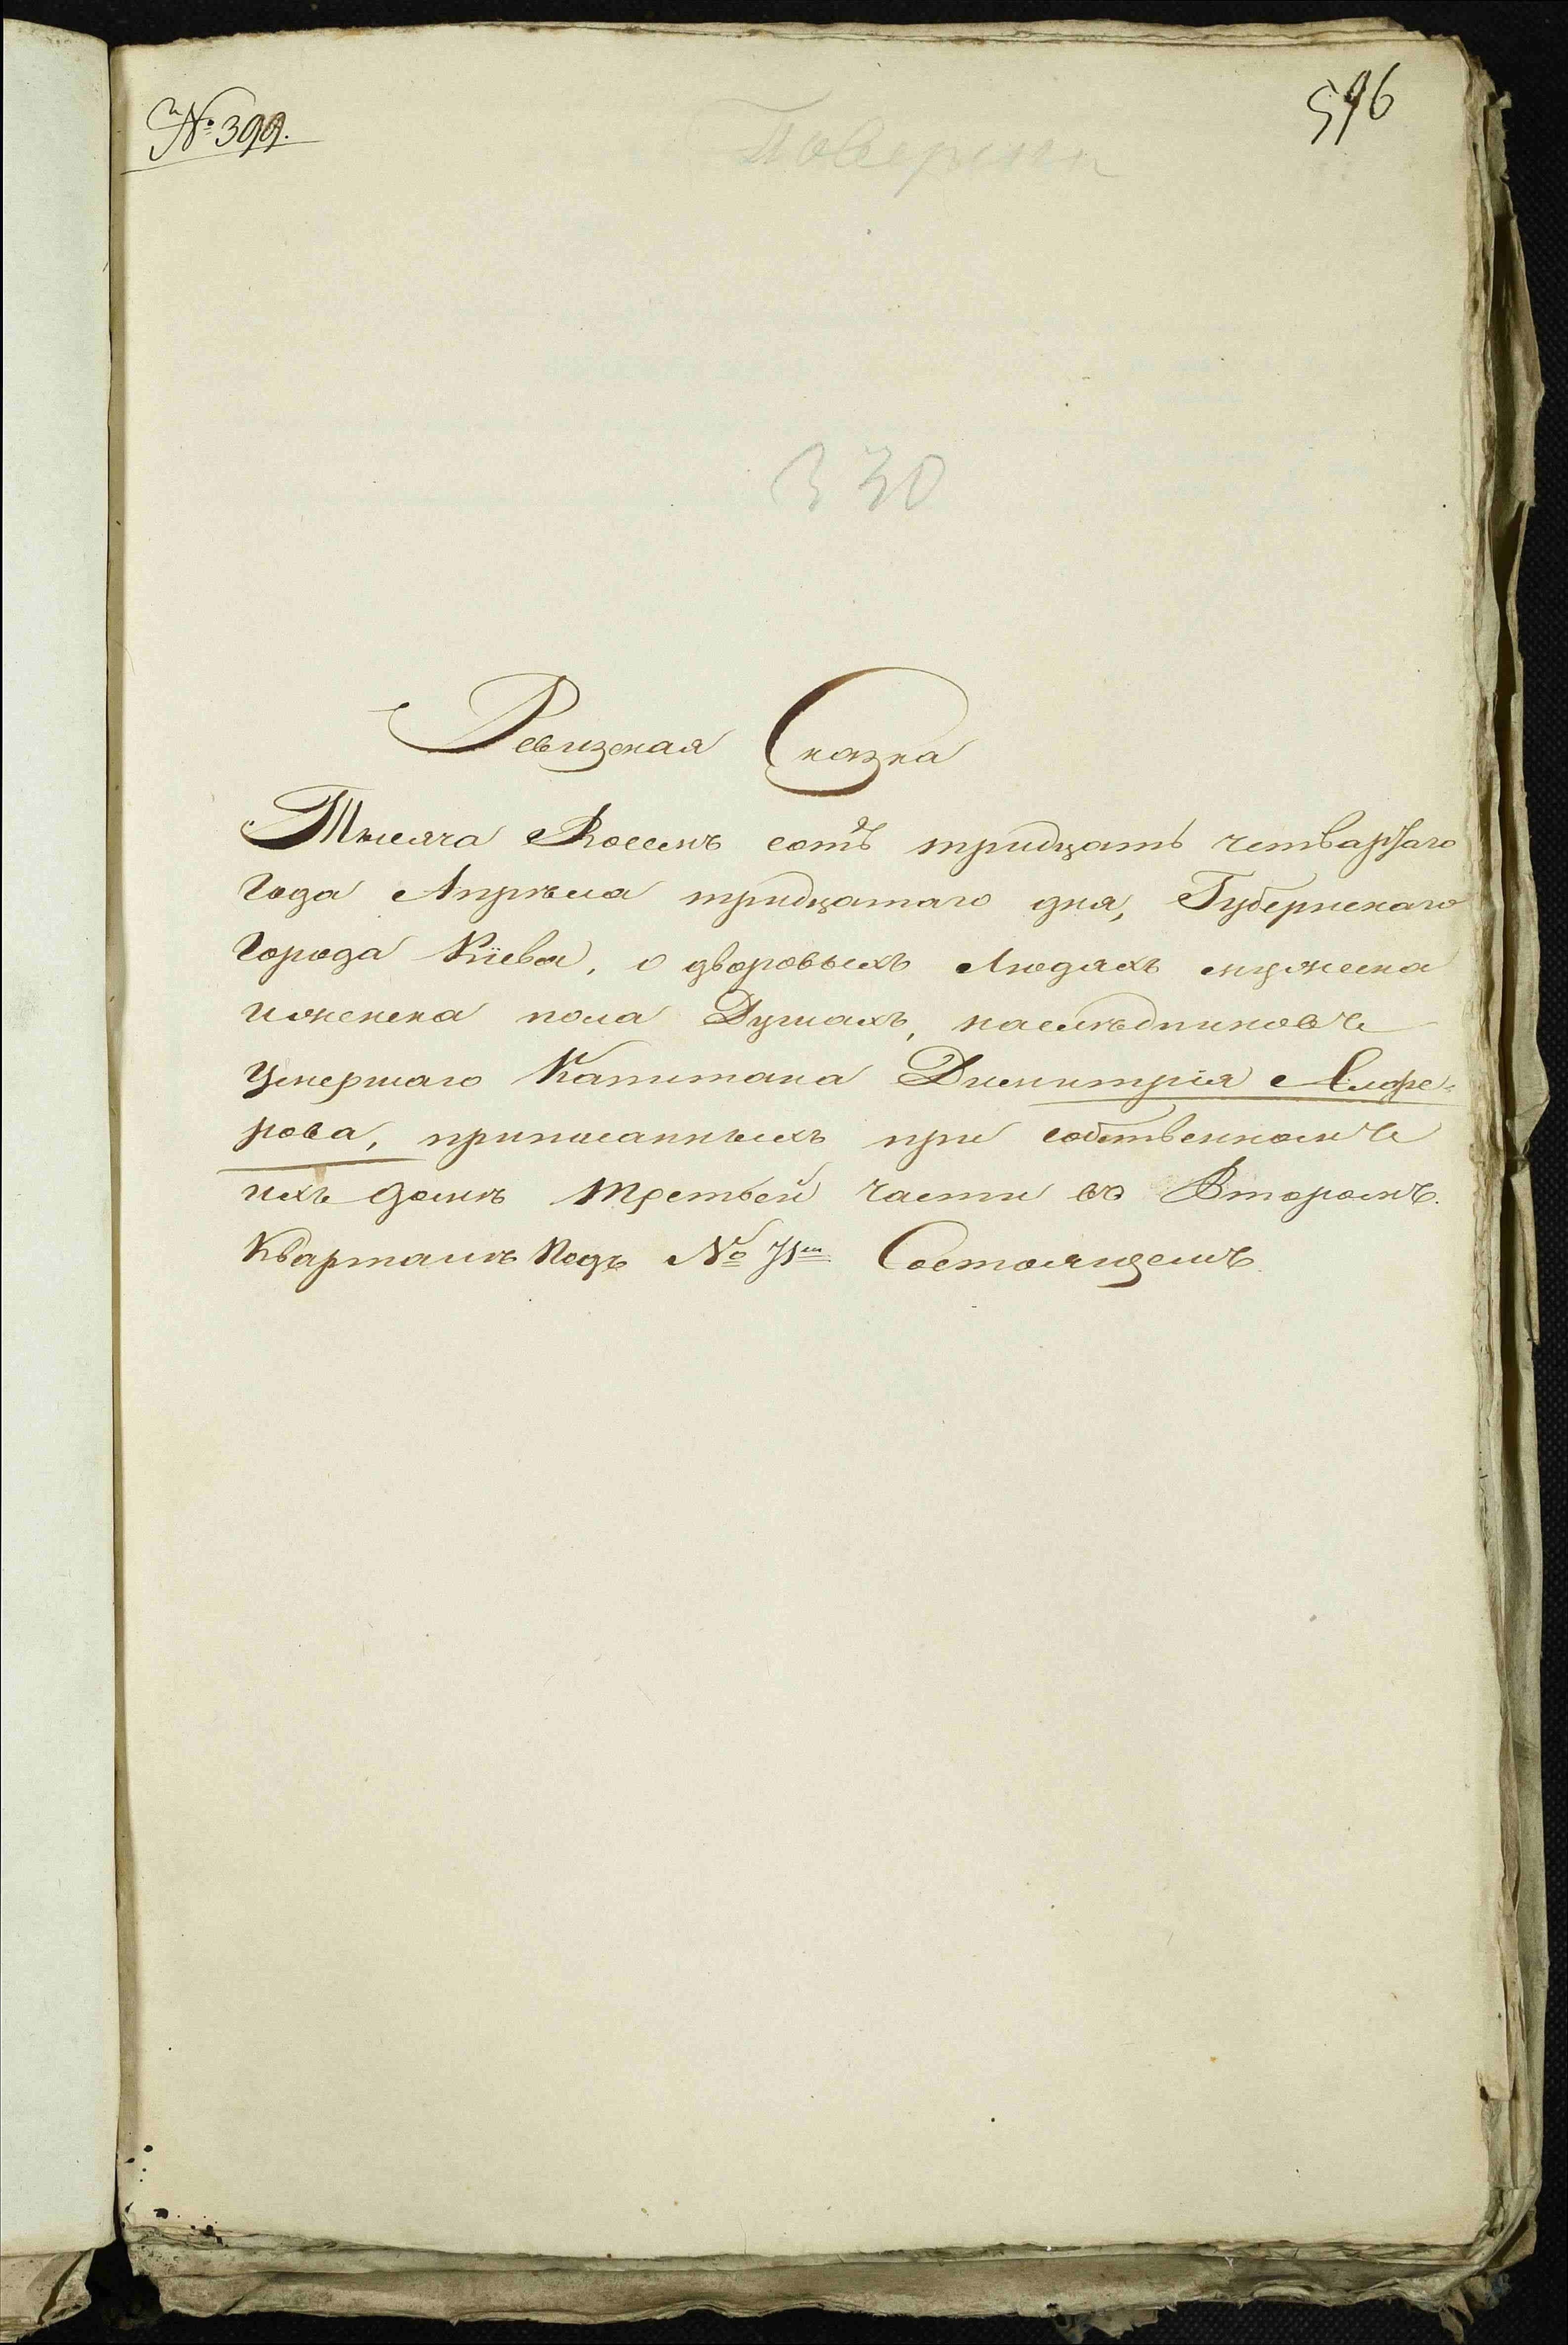 № 399.
596
Поверены
330
Ревизская Сказка
Тысяча Восемъ сотъ тридцать четвартаго
Года Апрѣля тридцатаго дня, Губернскаго
Города Кіева, о дворовыхъ Людяхъ мужеска
иженска пола Душахъ, наслѣдниковъ
умершаго Капитана Дмитрія Алфе-
рова, приписанныхъ при собственномъ
ихъ домѣ третьей части въ Второмъ
Кварталѣ Подъ № 71м Состоящемъ